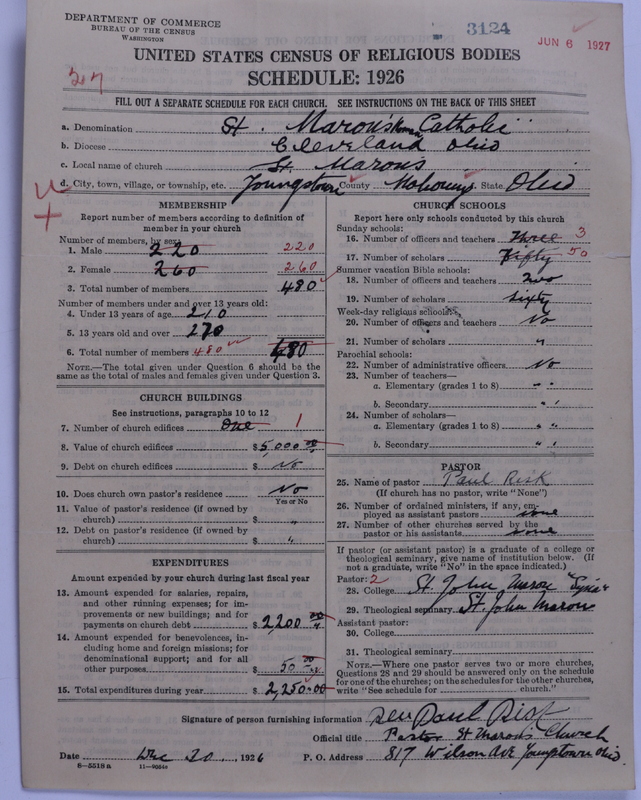 DEPARTMENT OF COMMERCE
BUREAU OF THE CENSUS
WASHINGTON
3124
JUN 6 1927
UNITED STATES CENSUS OF RELIGIOUS BODIES
SCHEDULE: 1926
FILL OUT A SEPARATE SCHEDULE FOR EACH CHURCH. SEE INSTRUCTIONS ON THE BACK OF THIS SHEET
a. Denomination St. Maron's Roman Catholic
b. Diocese Cleveland Ohio
c. Local name of church St. Marons
d. City, town, village, or township, etc. Youngstown County Mahoning State Ohio
MEMBERSHIP
Report number of members according to definition of
member in your church
Number of members, by sex:
1. Male 220 220
2. Female 260 260
3. Total number of members 480
Number of members under and over 13 years old:
4. Under 13 years of age 210
5. 13 years old and over 270
6. Total number of members 480 480
NOTE.—The total given under Question 6 should be
same as the total of males and females given under Question 3.
CHURCH BUILDINGS
See instructions, paragraphs 10 to 12
7. Number of church edifices One 1
8. Value of church edifices $5,000 00
9. Debt on church edifices $ No
10. Does church own pastor's residence No
Yes or No
11. Value of pastor's residence (if owned by
church) $ "
12. Debt on pastor's residence (if owned by
church) $ "
EXPENDITURES
Amount expended by your church during last fiscal year
13. Amount expended for salaries, repairs,
and other running expenses; for im-
provements or new buildings; and for
payments on church debt $ 2200
14. Amount expended for benevolences, in-
cluding home and foreign missions; for
denominational support; and for all
other purposes $ 50
15. Total expenditures during year $ 2,250.00
CHURCH SCHOOLS
Report here only schools conducted by this church
Sunday schools:
16. Number of officers and teachers Three 3
17. Number of scholars Fifty 50
Summer vacation Bible schools:
18. Number of officers and teachers Two
19. Number of scholars Sixty
Week-day religious schools:
20. Number of officers and teachers No
21. Number of scholars "
Parochial schools:
22. Number of administrative officers No
23. Number of teachers—
a. Elementary (grades 1 to 8) " "
b. Secondary " "
24. Number of scholars—
a. Elementary (grades 1 to 8) " "
b. Secondary " "
PASTOR
25. Name of pastor Paul Risk
(If church has no pastor, write "None")
26. Number of ordained ministers, if any, em-
ployed as assistant pastors none
27. Number of other churches served by the
pastor or his assistants none
If pastor (or assistant pastor) is a graduate of a college or
theological seminary, give name of institution below. (If
not a graduate, write "No" in the space indicated.)
Pastor: 2
28. College St. John Maron "Syria"
29. Theological seminary St John Maron
Assistant pastor:
30. College
31. Theological seminary
NOTE.—Where one pastor serves two or more churches,
Questions 28 and 29 should be answered only on the schedule
for one of the churches; on the schedules for the other churches,
write "See schedule for church."
Signature of person furnishing information Rev Paul Risk
Official title Pastor St Marons Church
Date Dec 20, 1926 P. O. Address 817 Wilson Ave Youngstown Ohio
6—5518 a